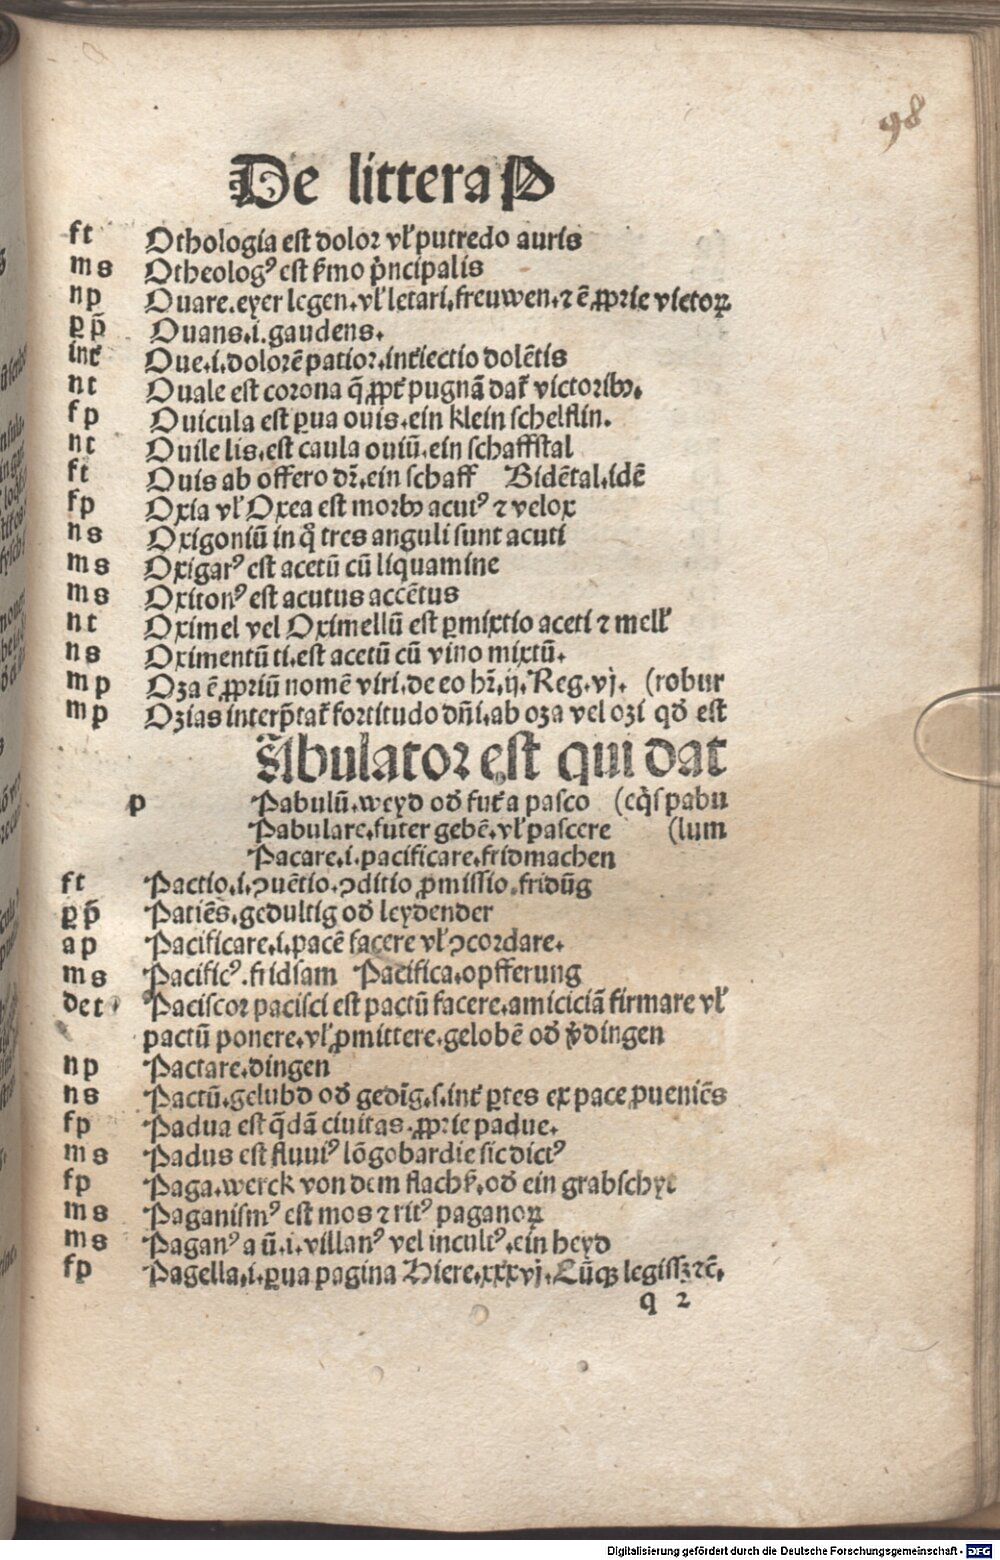 98
De littera P
ft Othologia est dolor vl' putredo auris
ms Otheologꝰ est s̄mo p̄ncipalis
np Ouare.eyer legen.vl' letari.freuwen.⁊ ē ꝓprie victoꝝ
ꝑp̄ Ouans.i.gaudens.
int̄ Oue.i.dolorē patior.int̄iectio dolētis
nt Ouale est corona q̄ ꝓpt̄ pugnā dat̄ victoribꝰ.
fp Ouicula est ꝑua ouis.ein klein schelflin.
nt Ouile lis.est caula ouiū.ein schaffstal
ft Ouis ab offero dr̄.ein schaff Bidētal.idē
fp Oxia vl' Oxea est morbꝰ acutꝰ ⁊ velox
ns Oxigoniū in q̊ tres anguli sunt acuti
ms Oxigarꝰ est acetū cū liquamine
ms Oxitonꝰ est acutus accētus
nt Oximel vel Oximellū est ꝑmixtio aceti ⁊ mell'
ns Oximentū ti.est acetū cū vino mixtū.
mp Oza ē ꝓpriū nomē viri.de eo hr̄.ij.Reg.vj. (robur
mp Ozias interp̄tat̄ fortitudo dn̄i.ab oza vel ozi qđ est
Abulator est qui dat
p Pabulū.weyd ođ fut̄a pasco (eq̄s pabu
Pabulare.futer gebē.vl' pascere (lum
Pacare.i.pacificare.fridmachen
ft Pactio.i.ꝯuētio.ꝯditio ꝓmissio.fridūg
ꝑp̄ Patiēs.gedultig ođ leydender
ap Pacificare.i.pacē facere vl' ꝯcordare.
ms Pacificꝰ.fridsam Pacifica.opfferung
det Paciscor pacisci est pactū facere.amiciciā firmare vl'
pactū ponere.vl' ꝓmittere.gelobē ođ v̄dingen
np Pactare.dingen
ns Pactū.gelubd ođ gedīg.s.int̄ ꝑtes ex pace ꝓueniēs
fp Padua est q̄dā ciuitas.ꝓprie padue.
ms Padus est fluuiꝰ lōgobardie sic dictꝰ
fp Paga.werck von dem flachß.ođ ein grabschyt
ms Paganismꝰ est mos ⁊ ritꝰ paganoꝝ
ms Paganꝰ a ū.i.villanꝰ vel incultꝰ.ein heyd
fp Pagella.i.ꝑua pagina Hiere.xxxvj.Cūqꝫ legissꝫ ⁊ē.
q 2
Digitalisierung gefördert durch die Deutsche Forschungsgemeinschaft - DFG